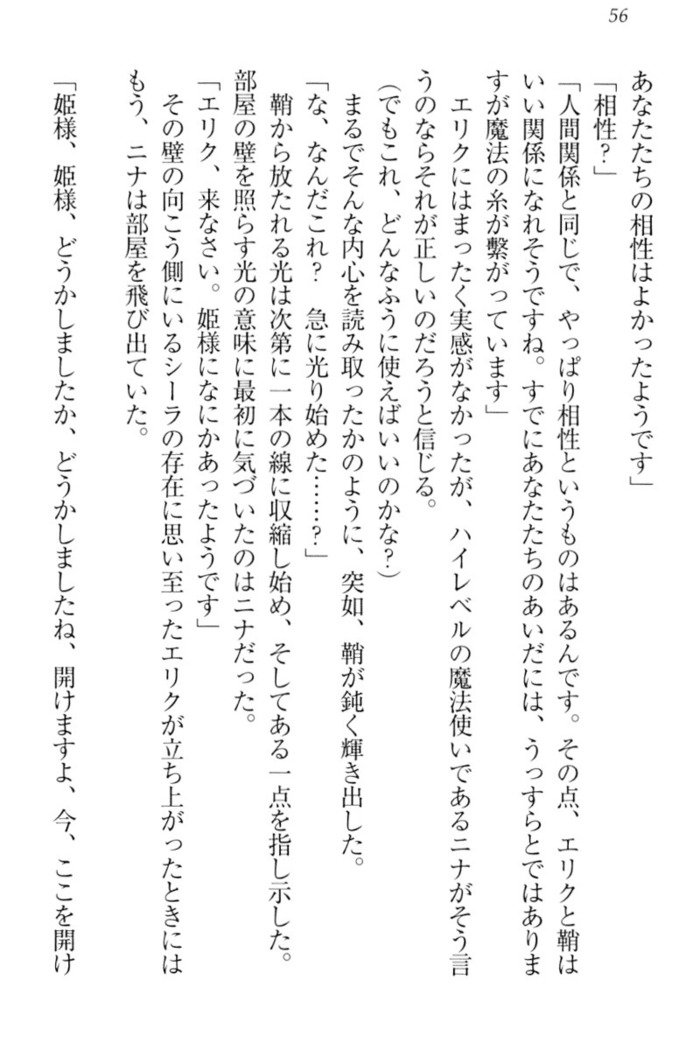 56
あなたたちの相性はよかったようです」
「相性？」
「人間関係と同じで、やっぱり相性というものはあるんです。その点、エリクと鞘は
いい関係になれそうですね。すでにあなたたちのあいだには、うっすらとではありま
すが魔法の糸が繋がっています」
エリクにはまったく実感がなかったが、ハイレベルの魔法使いであるニナがそう言
うのならそれが正しいのだろうと信じる。
（でもこれ、どんなふうに使えばいいのかな？）
まるでそんな内心を読み取ったかのように、突如、鞘が鈍く輝き出した。
「な、なんだこれ？　急に光り始めた……？」
鞘から放たれる光は次第に一本の線に収縮し始め、そしてある一点を指し示した。
部屋の壁を照らす光の意味に最初に気づいたのはニナだった。
「エリク、来なさい。姫様になにかあったようです」
その壁の向こう側にいるシーラの存在に思い至ったエリクが立ち上がったときには
もう、ニナは部屋を飛び出ていた。
「姫様、姫様、どうかしましたか、どうかしましたね、開けますよ、今、ここを開け